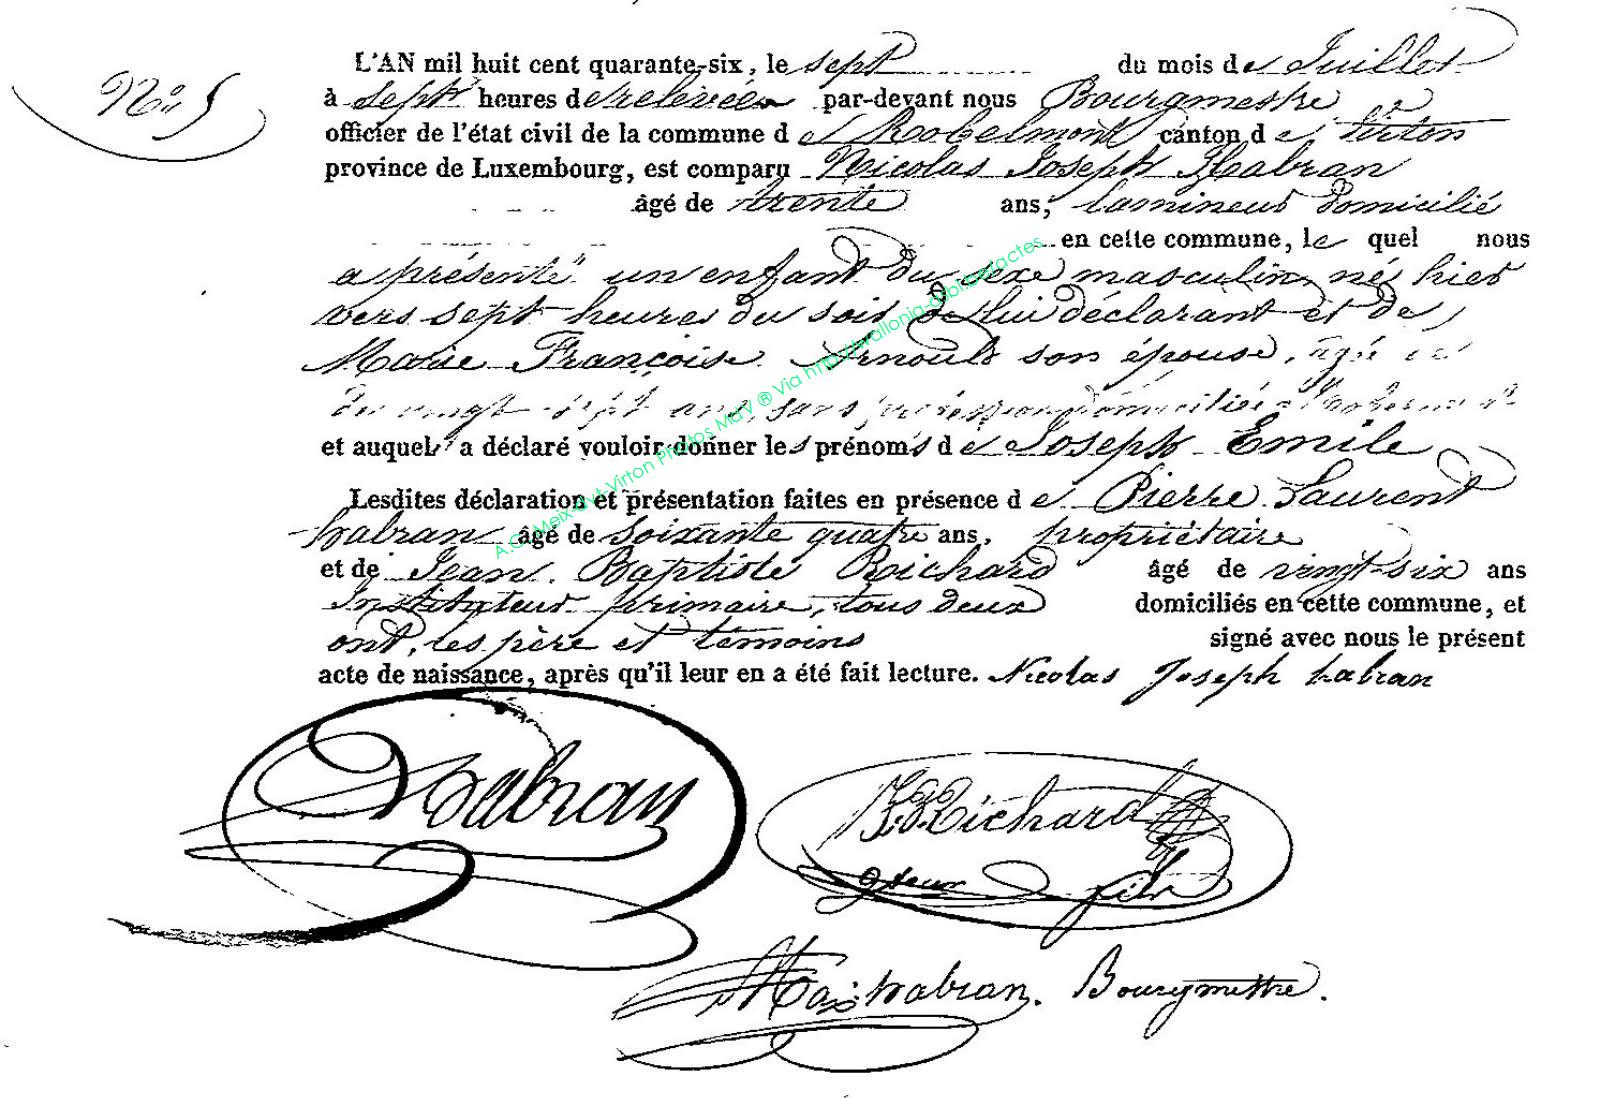 N° 5
L'AN mil huit cent quarante-six, le sept du mois de Juillet
à sept heures de relevée par-devant nous Bourgmestre
officier de l'état civil de la commune de Robelmont canton de Virton
province de Luxembourg, est comparu Nicolas Joseph Habran
âgé de trente ans, lamineur domicilié
en cette commune, le quel nous
a présenté un enfant du sexe masculin, né hier
vers sept heures du soir de lui déclarant et de
Marie Françoise Arnould son épouse, âgée de
de vingt sept ans, sans profession domiciliée à Robelmont
et auquel a déclaré vouloir donner les prénoms de Joseph Emile
Lesdites déclaration et présentation faites en présence de Pierre Laurent
habran âgé de soixante quatre ans, propriétaire
et de Jean Baptiste Richard âgé de vingt-six ans
Instituteur primaire, tous deux domiciliés en cette commune, et
ont, les père et témoins signé avec nous le présent
acte de naissance, après qu'il leur en a été fait lecture. Nicolas Joseph habran
Habran
J.B. Richard
habran. Bourgmestre.
A.C. Meix-dvt-Virton Photos MdV ® Via http://wallonia-asbl.be/actes